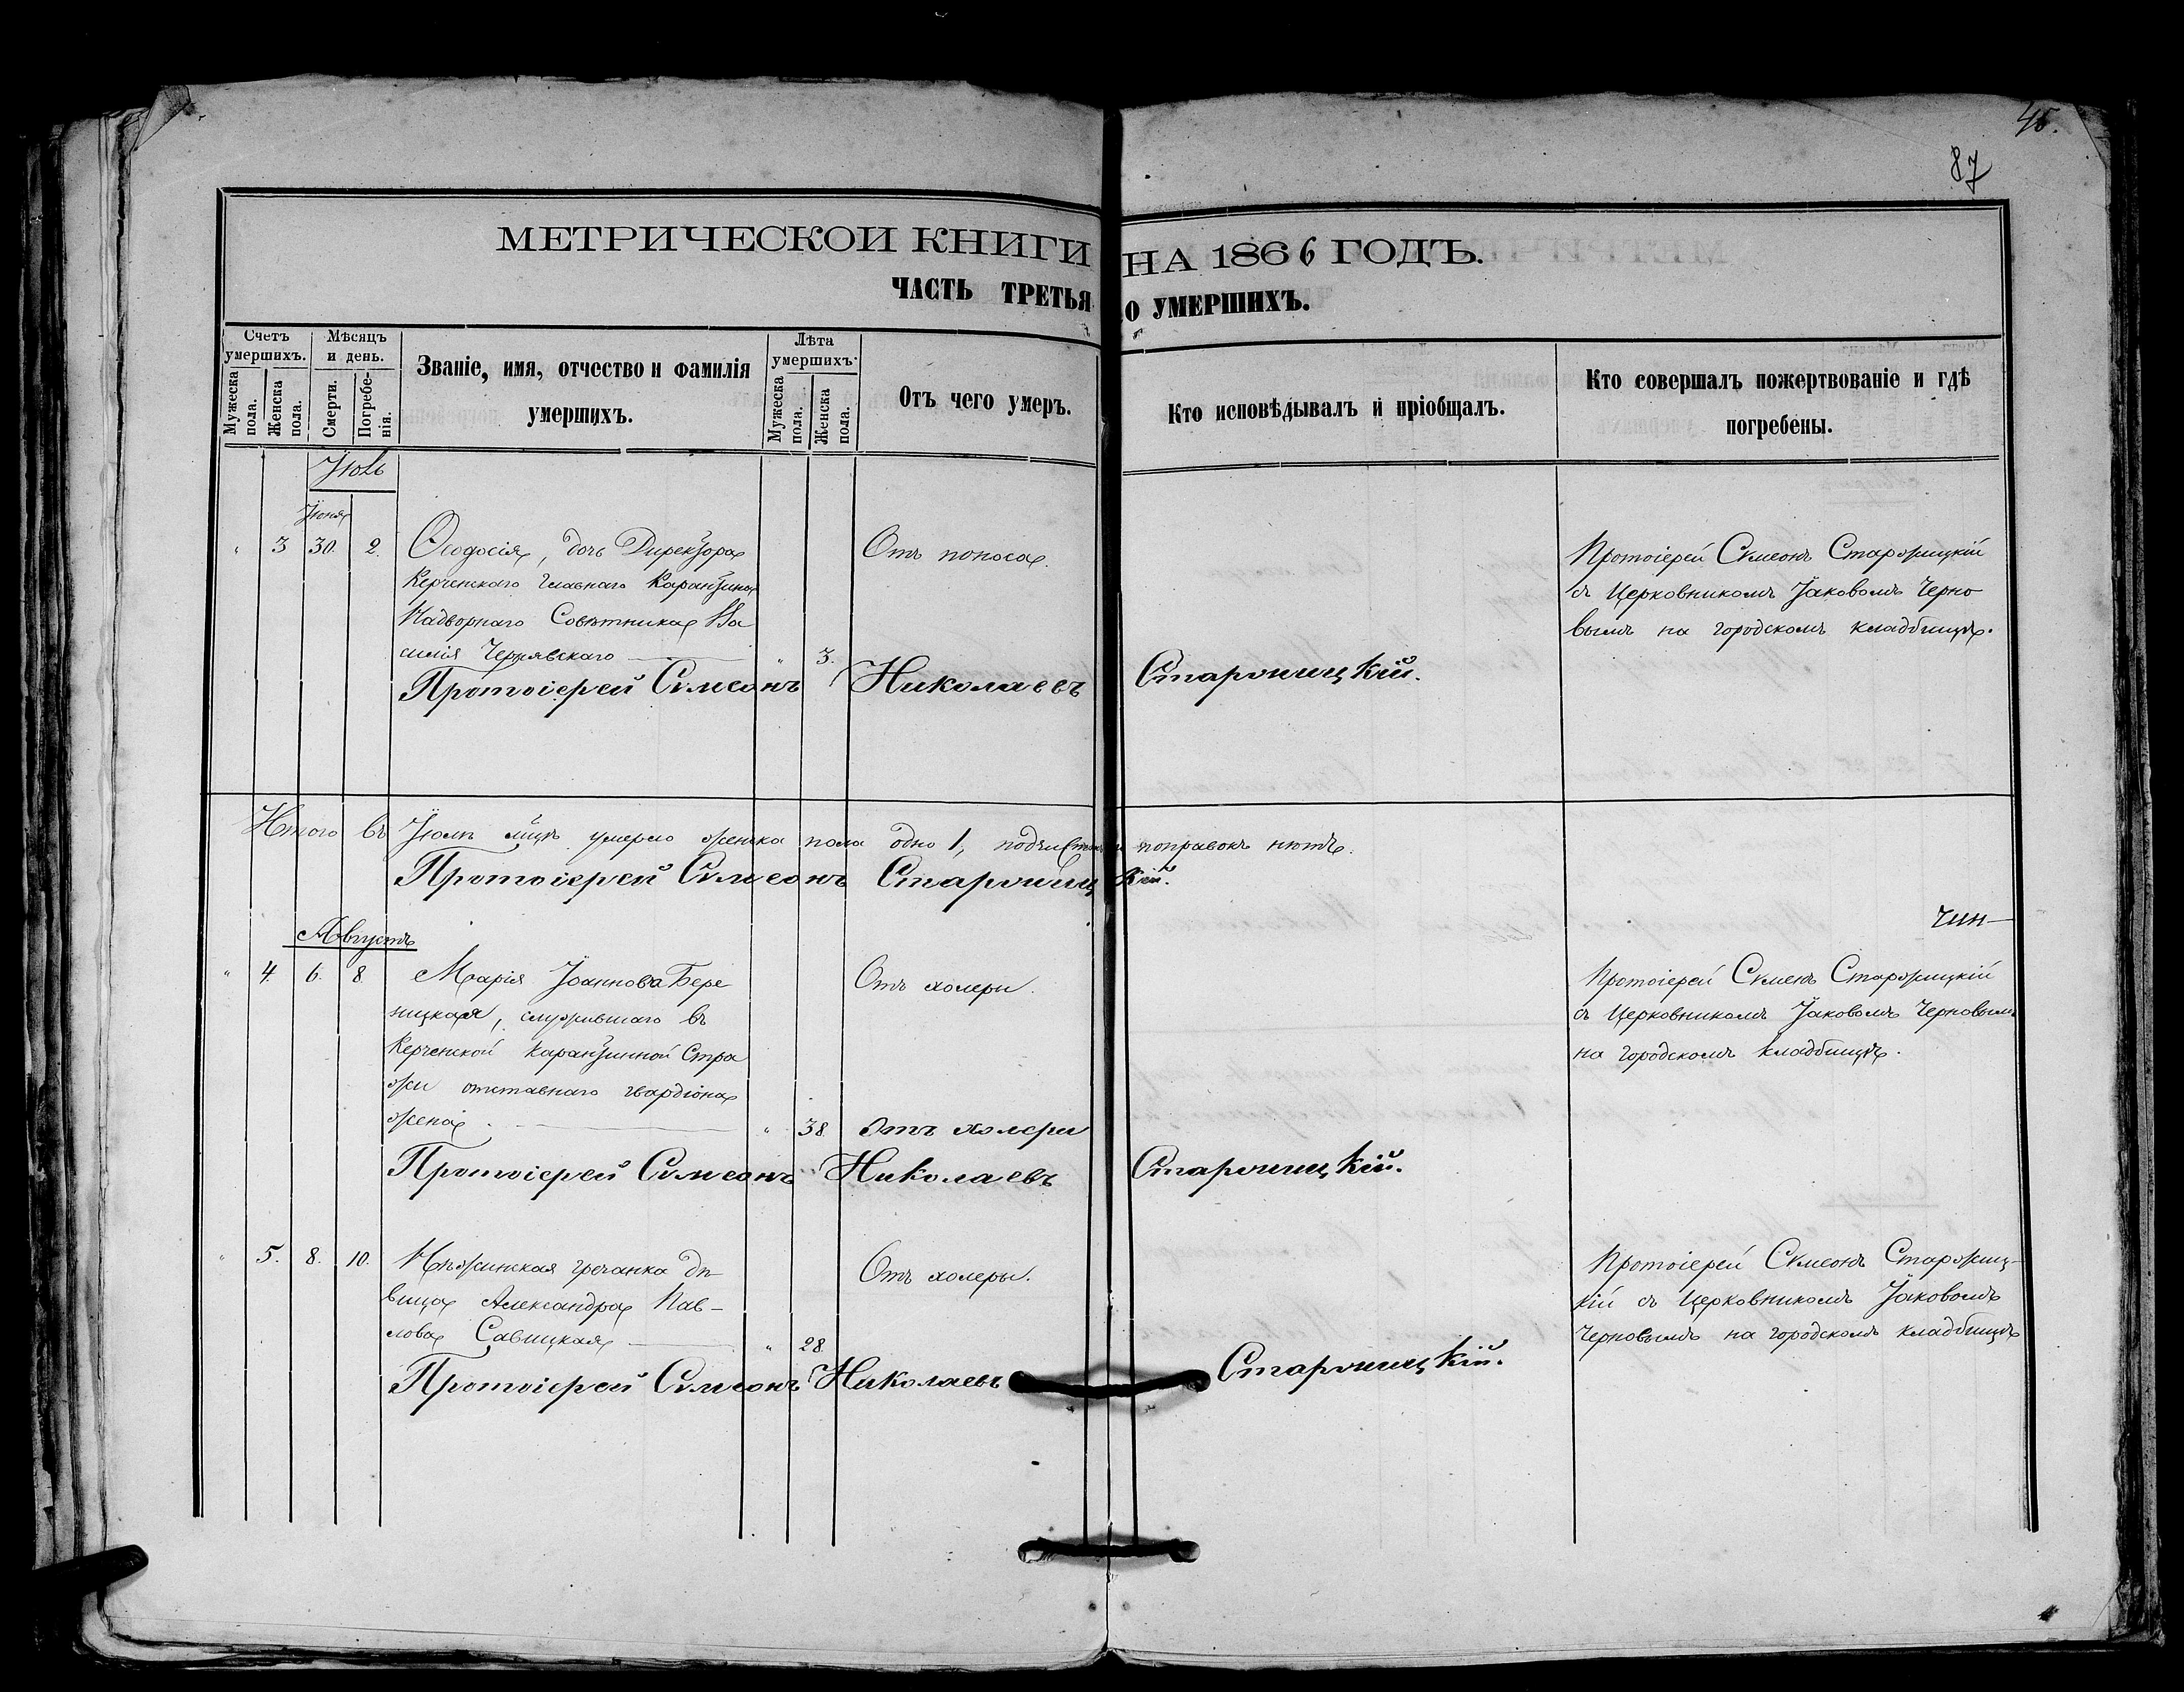 45.
87
МЕТРИЧЕСКОЙ КНИГИ НА 1866 ГОДЪ.
ЧАСТЬ ТРЕТЬЯ О УМЕРШИХЪ.
Счетъ умершихъ.
Мужеска пола.
Женска пола.
Мѣсяцъ и день.
Смерти.
Погребенія.
Званіе, имя, отчество и фамилія
умершихъ.
Лѣта умершихъ
Мужеска пола.
Женска пола.
Отъ чего умеръ.
Кто исповѣдывалъ и пріобщалъ.
Кто совершалъ пожертвованіе и гдѣ
погребены.
Іюль
Іюня
" 3 30. 2. Ѳеодосія, дочь Директора
Керченскаго Главнаго Карантина
Надворнаго Совѣтника Ва
силія Чернявскаго " 3.
Отъ поноса.
Протоіерей Сѵмеонъ Старожицкій
съ Церковникомъ Іаковомъ Черно
вымъ на городскомъ кладбищѣ.
Протоіерей Сѵмеонъ Николаевъ Старожицкій.
Итого въ Іюлѣ лицъ умерло женска пола одно 1, поправокъ нѣтъ.
Протоіерей Сѵмеонъ Старожицкій.
Августъ
чин—
" 4. 6. 8. Марія Іоаннова Бере
ницкая, служившаго въ
Керченской Карантинной Стра
жи отставнаго гвардіона
жена " 38.
Отъ холеры.
Отъ холеры
Протоіерей Сѵмеонъ Старожицкій
съ Церковникомъ Іаковомъ Черновымъ
на городскомъ кладбищѣ.
Протоіерей Сѵмеонъ Николаевъ Старожицкій.
" 5. 8. 10. Нѣжинская гречанка дѣ
вица Александра Пав–
лова Савицкая " 28.
Отъ холеры.
Протоіерей Сѵмеонъ Старожиц–
кій съ Церковникомъ Іаковомъ
Черновымъ на городскомъ кладбищѣ
Протоіерей Сѵмеонъ Николаевъ Старожицкій.